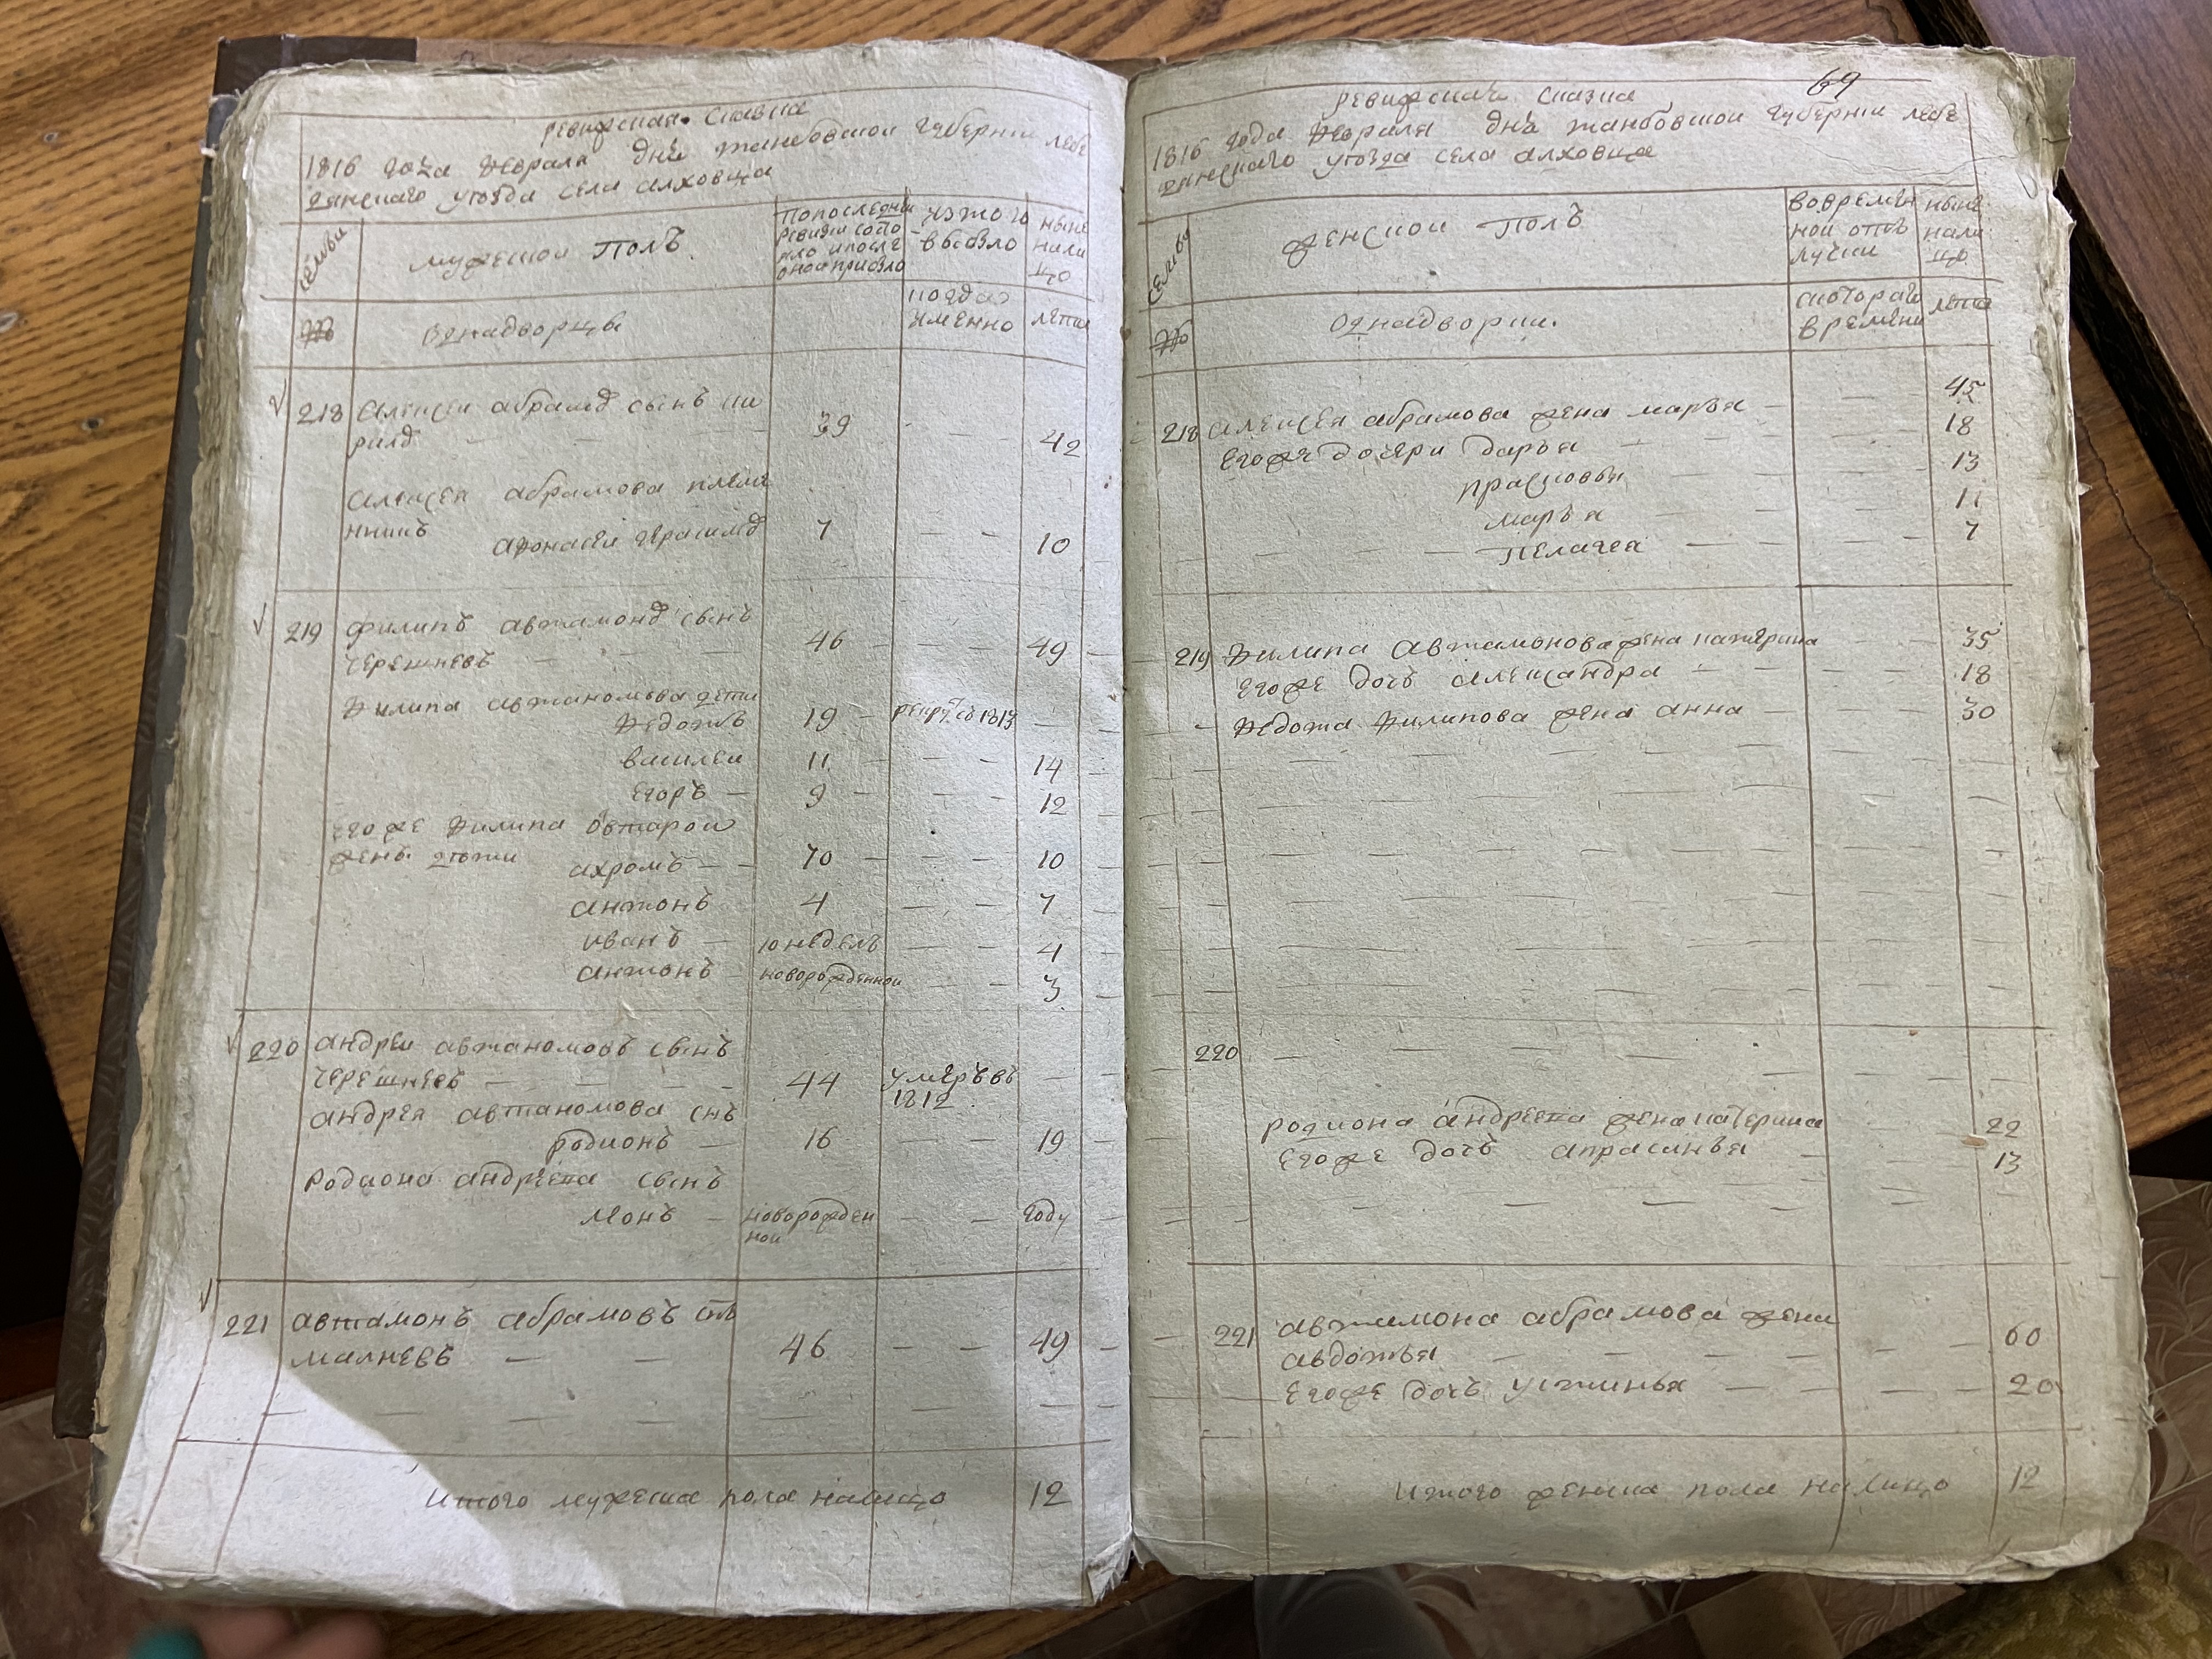 ревижская сказка
1816 года февраля дня танбовской губернии лебе
дянского уѣзда села алховца
семьи
мужеской полъ
попоследней ревизии состо яло и после оной прибыло
изтого выбыло
ныне нали цо
№
однадворцы
когда именно
лета
218 алексеи абрамов сынъ ки
рилов 39 — — 42
алексея абрамова племя
никъ афонасеи герасимов 7 — — 10
219 филипъ автамонов сынъ
черешневъ 46 — — 49
филипа автаномова дети
федотъ 19 рекру съ 1813 —
василеи 11 — — 14
егоръ — 9 — — 12
егоже филипа овтарои
жены дѣти
ахромъ — 70 — — 10
антонъ 4 — — 7
иванъ — 10 недель — — 4
антонъ новорожденной — 3
220 андреи автаномовъ сынъ
черешневъ — 44 умеръ въ 1812 —
андрея автаномова снъ
родионъ — 16 — — 19
родиона андреева сынъ
новорожден ной — — году
221 автамонъ абрамовъ снъ
малневъ — — 46 — — 49
итого мужеска пола налицо 12
69
ревижская сказка
1816 года февраля дня танбовской губернии лебе
дянского уѣзда села алховца
семьи
женской полъ
вовремен ной отъ лучки
ныне нали цо
№
однадворки.
скоторого времени
лета
218 алексея абрамова жена марья — 45
егоже дочери дарья 18
прасковья 13
марья 11
пелагея 7
219 филипа автамонова жена катерина 35
егоже дочь александра 18
федота филипова жена анна 30
220
родиона андреева жена катерина 22
егоже дочь апрасинья 13
221 автамона абрамова жена
авдотья 60
егоже дочь устинья 20
итого женска пола налицо 12